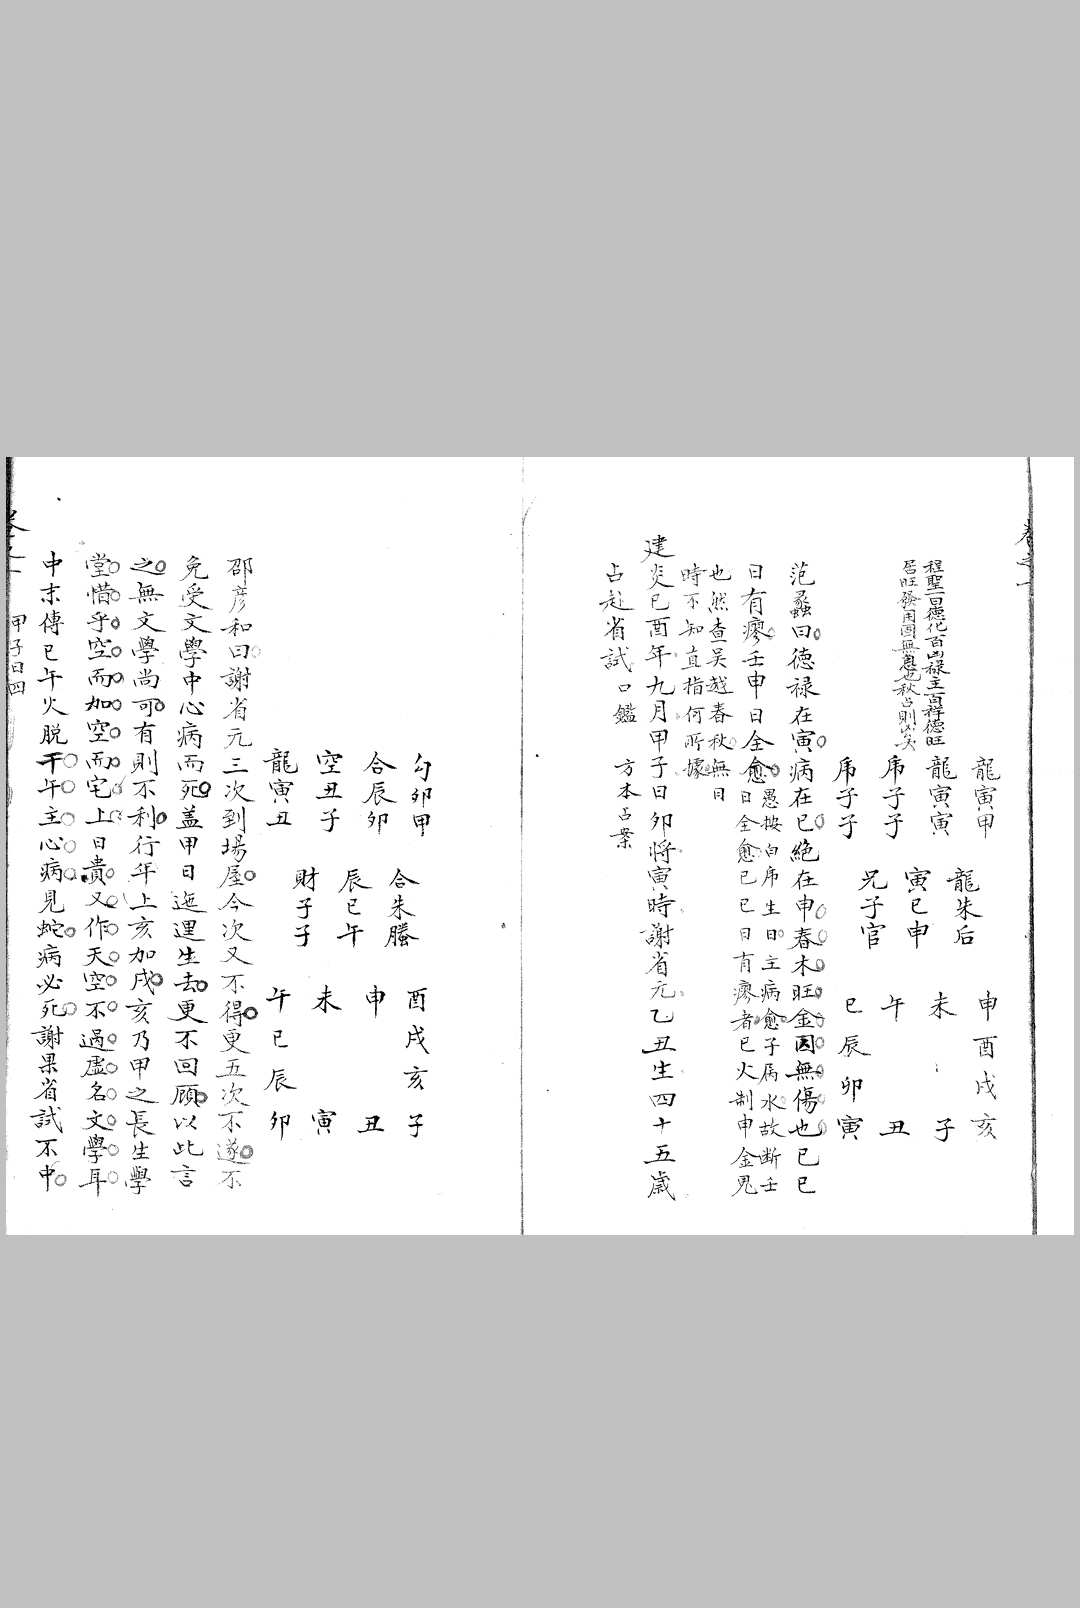 卷之一
程聖曰德化百凶祿主百祥德旺
居旺發用固無患也秋占則凶矣
龍寅甲
龍寅寅
虎子子
虎子子
龍朱后
寅巳申
兄子官
申酉戌亥
未　子
午　丑
巳辰卯寅
范蠡曰德祿在寅病在巳絕在申春木旺金囚無傷也己巳
日有瘳壬申日全愈
愚按白虎生日主病愈子屬水故斷壬
日全愈己巳日有瘳者巳火制申金鬼
也然查吳越春秋無日
時不知直指何所據
建炎己酉年九月甲子日卯將寅時謝省元乙丑生四十五歲
占赴省試　口鑑　方本占案
勾卯甲
合辰卯
空丑子
龍寅丑
合朱螣
辰巳午
財子子
酉戌亥子
申　丑
未　寅
午巳辰卯
邵彥和曰謝省元三次到場屋今次又不得更五次不遂不
免受文學中心病而死蓋甲日迤邐生去更不回顧以此言
之無文學尚可有則不利行年上亥加戌亥乃甲之長生學
堂惜乎空而加空而宅上日貴又作天空不過虛名文學耳
中末傳巳午火脫干午主心病見蛇病必死謝果省試不中
卷之一　甲子日四